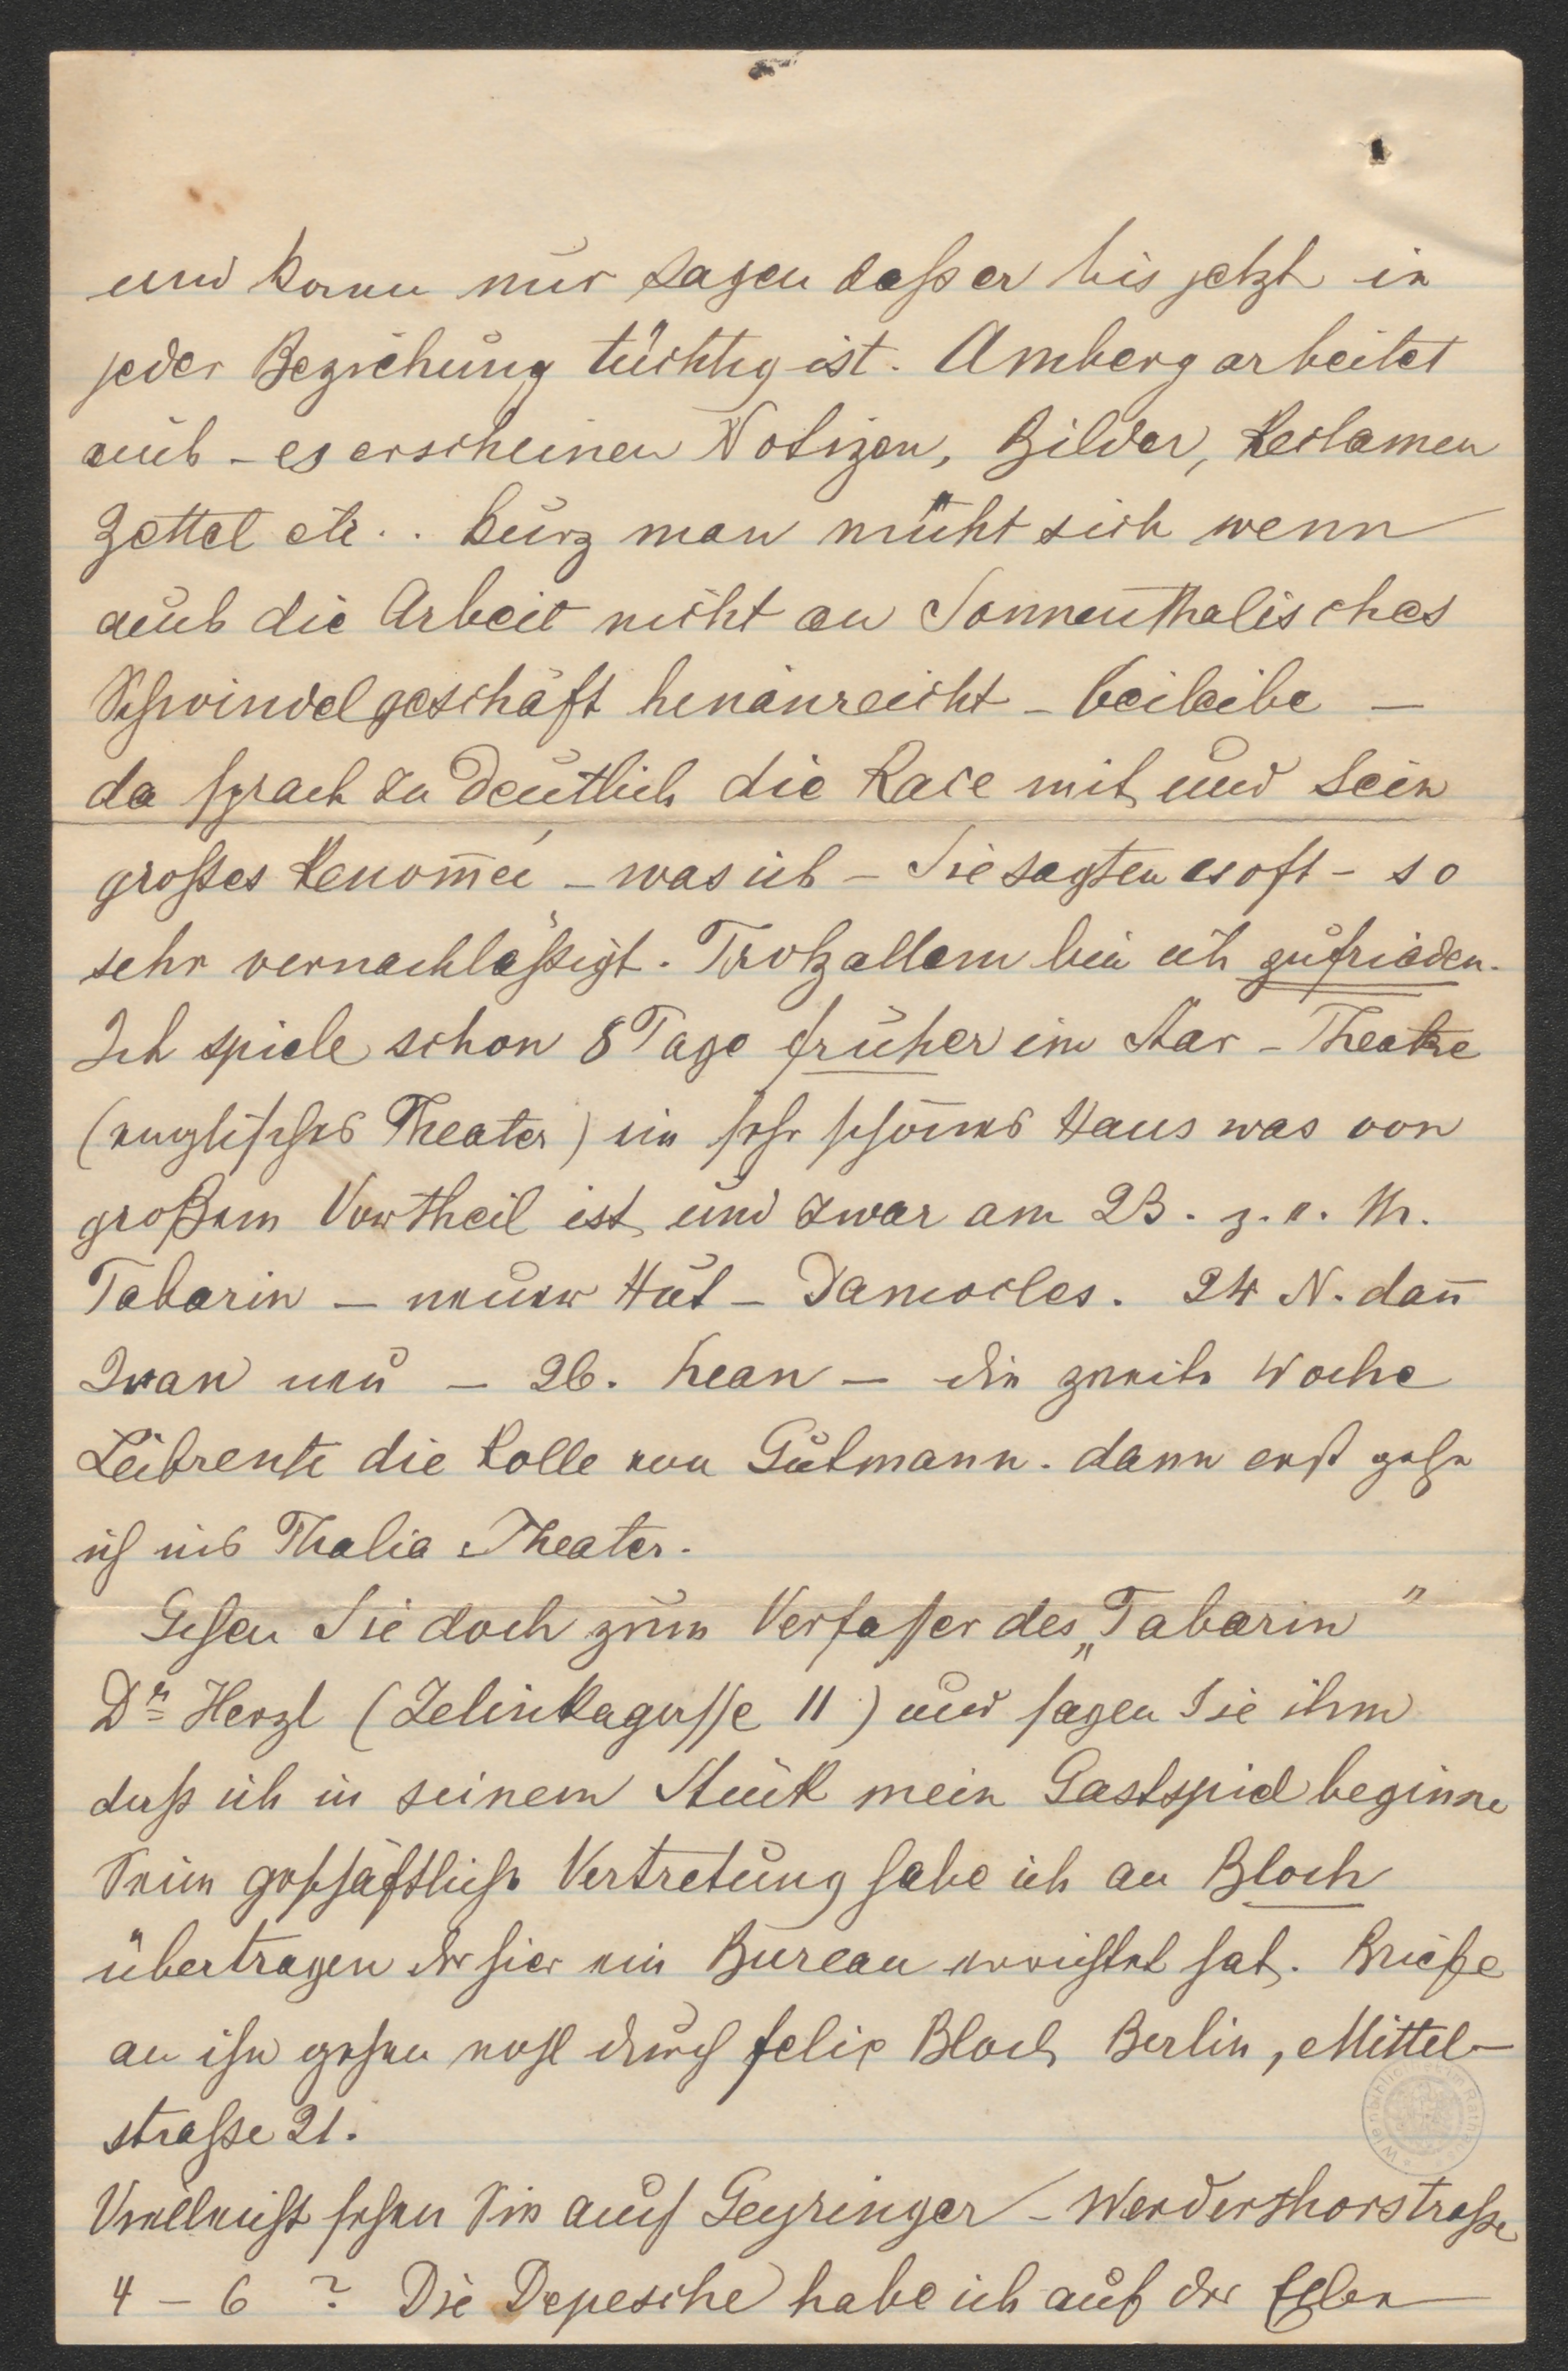 und kann nur sagen daß er bis jetzt in
jeder Beziehung tüchtig ist. Amberg arbeitet
auch – es erscheinen Notizen, Bilder, Reclamen
Zettel etc.. kurz man müht sich wenn
auch die Arbeit nicht an Sonnenthalisches
Schwindelgeschäft hinanreicht – beileibe –
da sprach zu deutlich die Race mit und sein
großes Renom̅ée – was ich – Sie sagten es oft – so
sehr vernachläßigt. Trotzallem bin ich zufrieden.
Ich spiele schon 8 Tage früher im Star-Theatre
(englisches Theater) ein sehr schönes Haus was von
großem Vortheil ist und zwar am 23. z. e. M.
Tabarin – neuer Hut – Damocles. 24 N. dan̅
Ivan neu – 26. Kean – die zweite Woche
Leibrente die Rolle von Gutmann. dann erst gehe
ich ins Thalia Theater.
Gehen Sie doch zum Verfaßer des „Tabarin"
Dr. Herzl (Zelinkagasse 11) und sagen Sie ihm
daß ich in seinem Stück mein Gastspiel beginne
Seine geschäftliche Vertretung habe ich an Bloch
übertragen der hier ein Bureau errichtet hat. Briefe
an ihn gehen wohl durch Felix Bloch Berlin, Mittel-
straße 21.
Vielleicht sehen Sie auch Geyringer – Werderthorstraße
4 – 6 ? Die Depesche habe ich auf der Elbe
Wienbibliothek im Rathaus